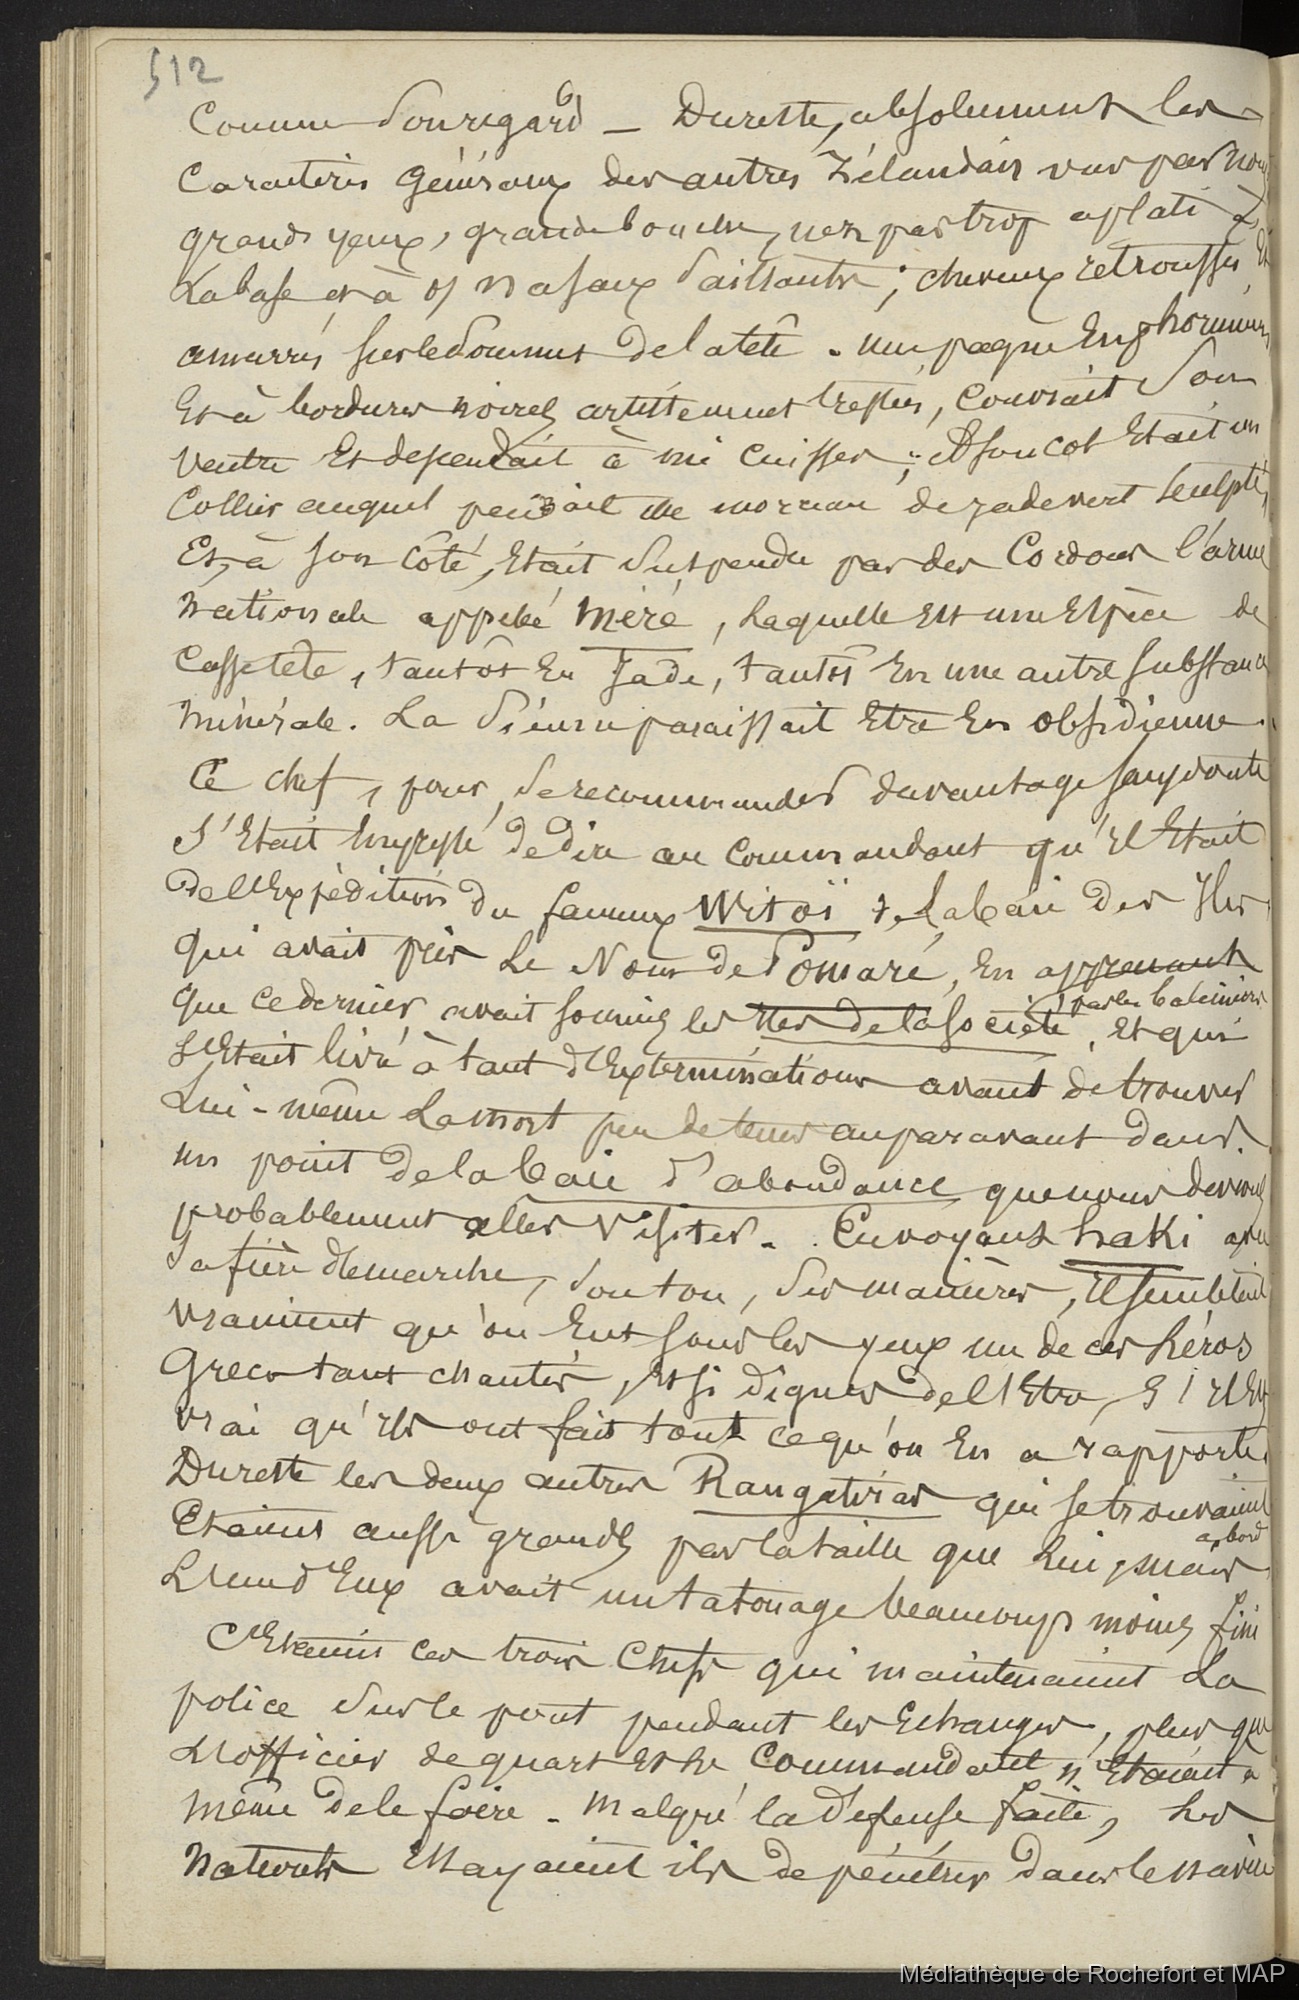 512
Comme son regard — Dureste, absolument les
Caractères généraux des autres Zélandais vus par nous
grands yeux, grande bouche, nez pas trop aplati à
La base et à os nasaux saillants ; cheveux retroussés et
amarrés sur le sommet de la tête. un pagne En phormium
Et à bordures noires artistement tressées, Couvrait Son
Ventre Et dependait à mi Cuisses ; A son col Etait un
Collier auquel pendait un morceau de jade vert sculpté,
Et, à son Côté, Etait Suspendu par des Cordons l'arme
Nationale appelée Méré, Laquelle Est une Espèce de
Casse tête, tantôt En Jade, tantôt En une autre substance
Minérale. La Sienne paraissait Etre En obsidienne.
Ce chef, pour se recommander davantage sans doute
S'Etait Empressé de dire au Commandant qu'il Etait
De l'Expédition du fameux Witoï de la baie Des Iles
qui avait pris Le Nom de Pomaré, En apprenant
Que Ce dernier avait soumis les Iles de la Société, Et qui
par les baleiniers
S'Etait livré à tant d'Exterminations avant de trouver
Lui-même La mort peu de tems auparavant dans
un point de la baie d'abondance que nous devrons
probablement aller Visiter. En voyant haKi avec
Sa fière démarche, Son ton, Ses manières, il semblait
Vraiment qu'on Eut sous les yeux un de ces héros
Grecs tant chantés, Et si dignes de l'Etre, s'il Est
Vrai qu'ils ont fait tout ce qu'on En a rapporté.
Dureste les deux autres Rangatiras qui se trouvaient
a bord
Etaient aussi grands par la taille que Lui, mais
L'un d'Eux avait un tatouage beaucoup moins fini
C'Etaient Ces trois Chefs qui maintenaient La
police Sur le pont pendant les Echanges, plus que
L'officier de quart Et le Commandant n'Etaient à
Même de le faire. Malgré la Défense faite, Les
Naturels Essayaient ils de pénétrer Dans le navire
Médiathèque de Rochefort et MAP